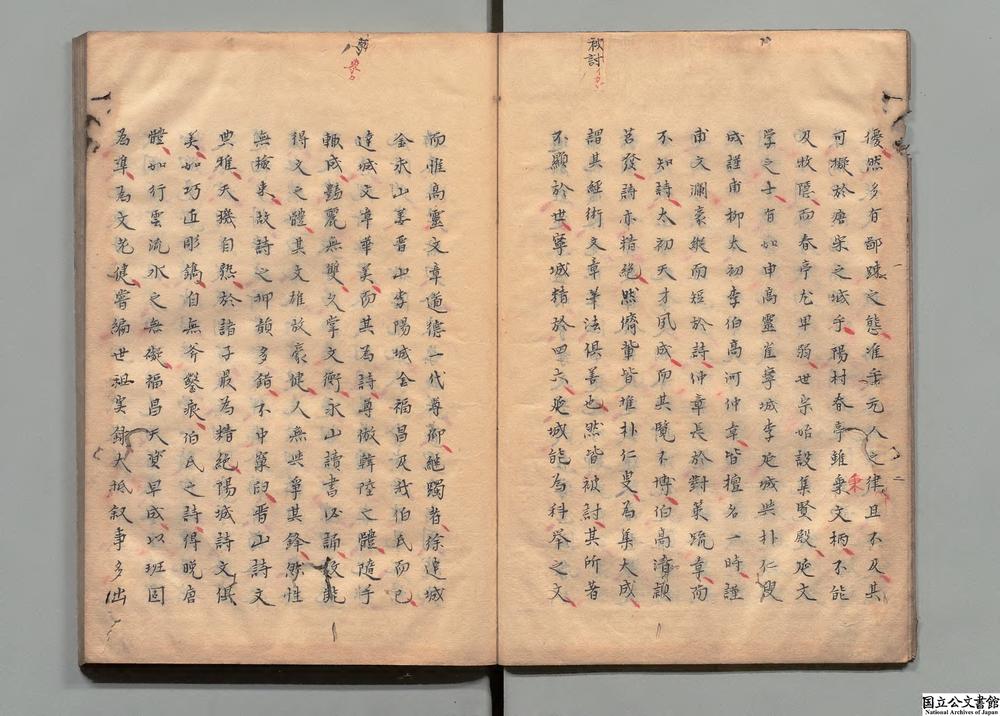 優然多有鄙踈之態准乎元人之律且不及其
可擬於唐宋之域乎陽村春亭雖秉文柄不能
秉
及牧隱而春亭尤卑弱世宗始設集賢殿延文
學之士有如申高靈崔寧城李延城与朴仁叟
成謹甫柳太初李伯高河仲章皆擅名一時謹
甫文瀾豪縱而短於詩仲章長於對策疏章而
不知詩太初天才夙成而其覽不博伯高淸穎
英發詩亦精絶然儕輩皆推朴仁叟為集大成
謂其經術文章筆法俱善也然皆被討其所著
不顯於世寧城精於四六延城能為科举之文
而惟高靈文章道德一代尊仰繼躅者徐達城
金永山姜晋山李陽城金福昌及我伯氏而已
達城文章華美而其為詩專倣韓陸之體隨手
輒成艷麗無雙久掌文衡永山讀書必誦故能
得文之體其文雄放豪健人無與爭其鋒然性
無檢束故詩之押韻多錯不中窠臼晋山詩文
典雅天璣自熟於諸子最為精絶陽城詩文俱
美如巧匠彫鐫自無斧鑿痕伯氏之詩得晚唐
體如行雲流水之無礙福昌天資早成以班固
為準為文老健嘗編世祖実録大抵叙事多出
国立公文書館
National Archives of Japan